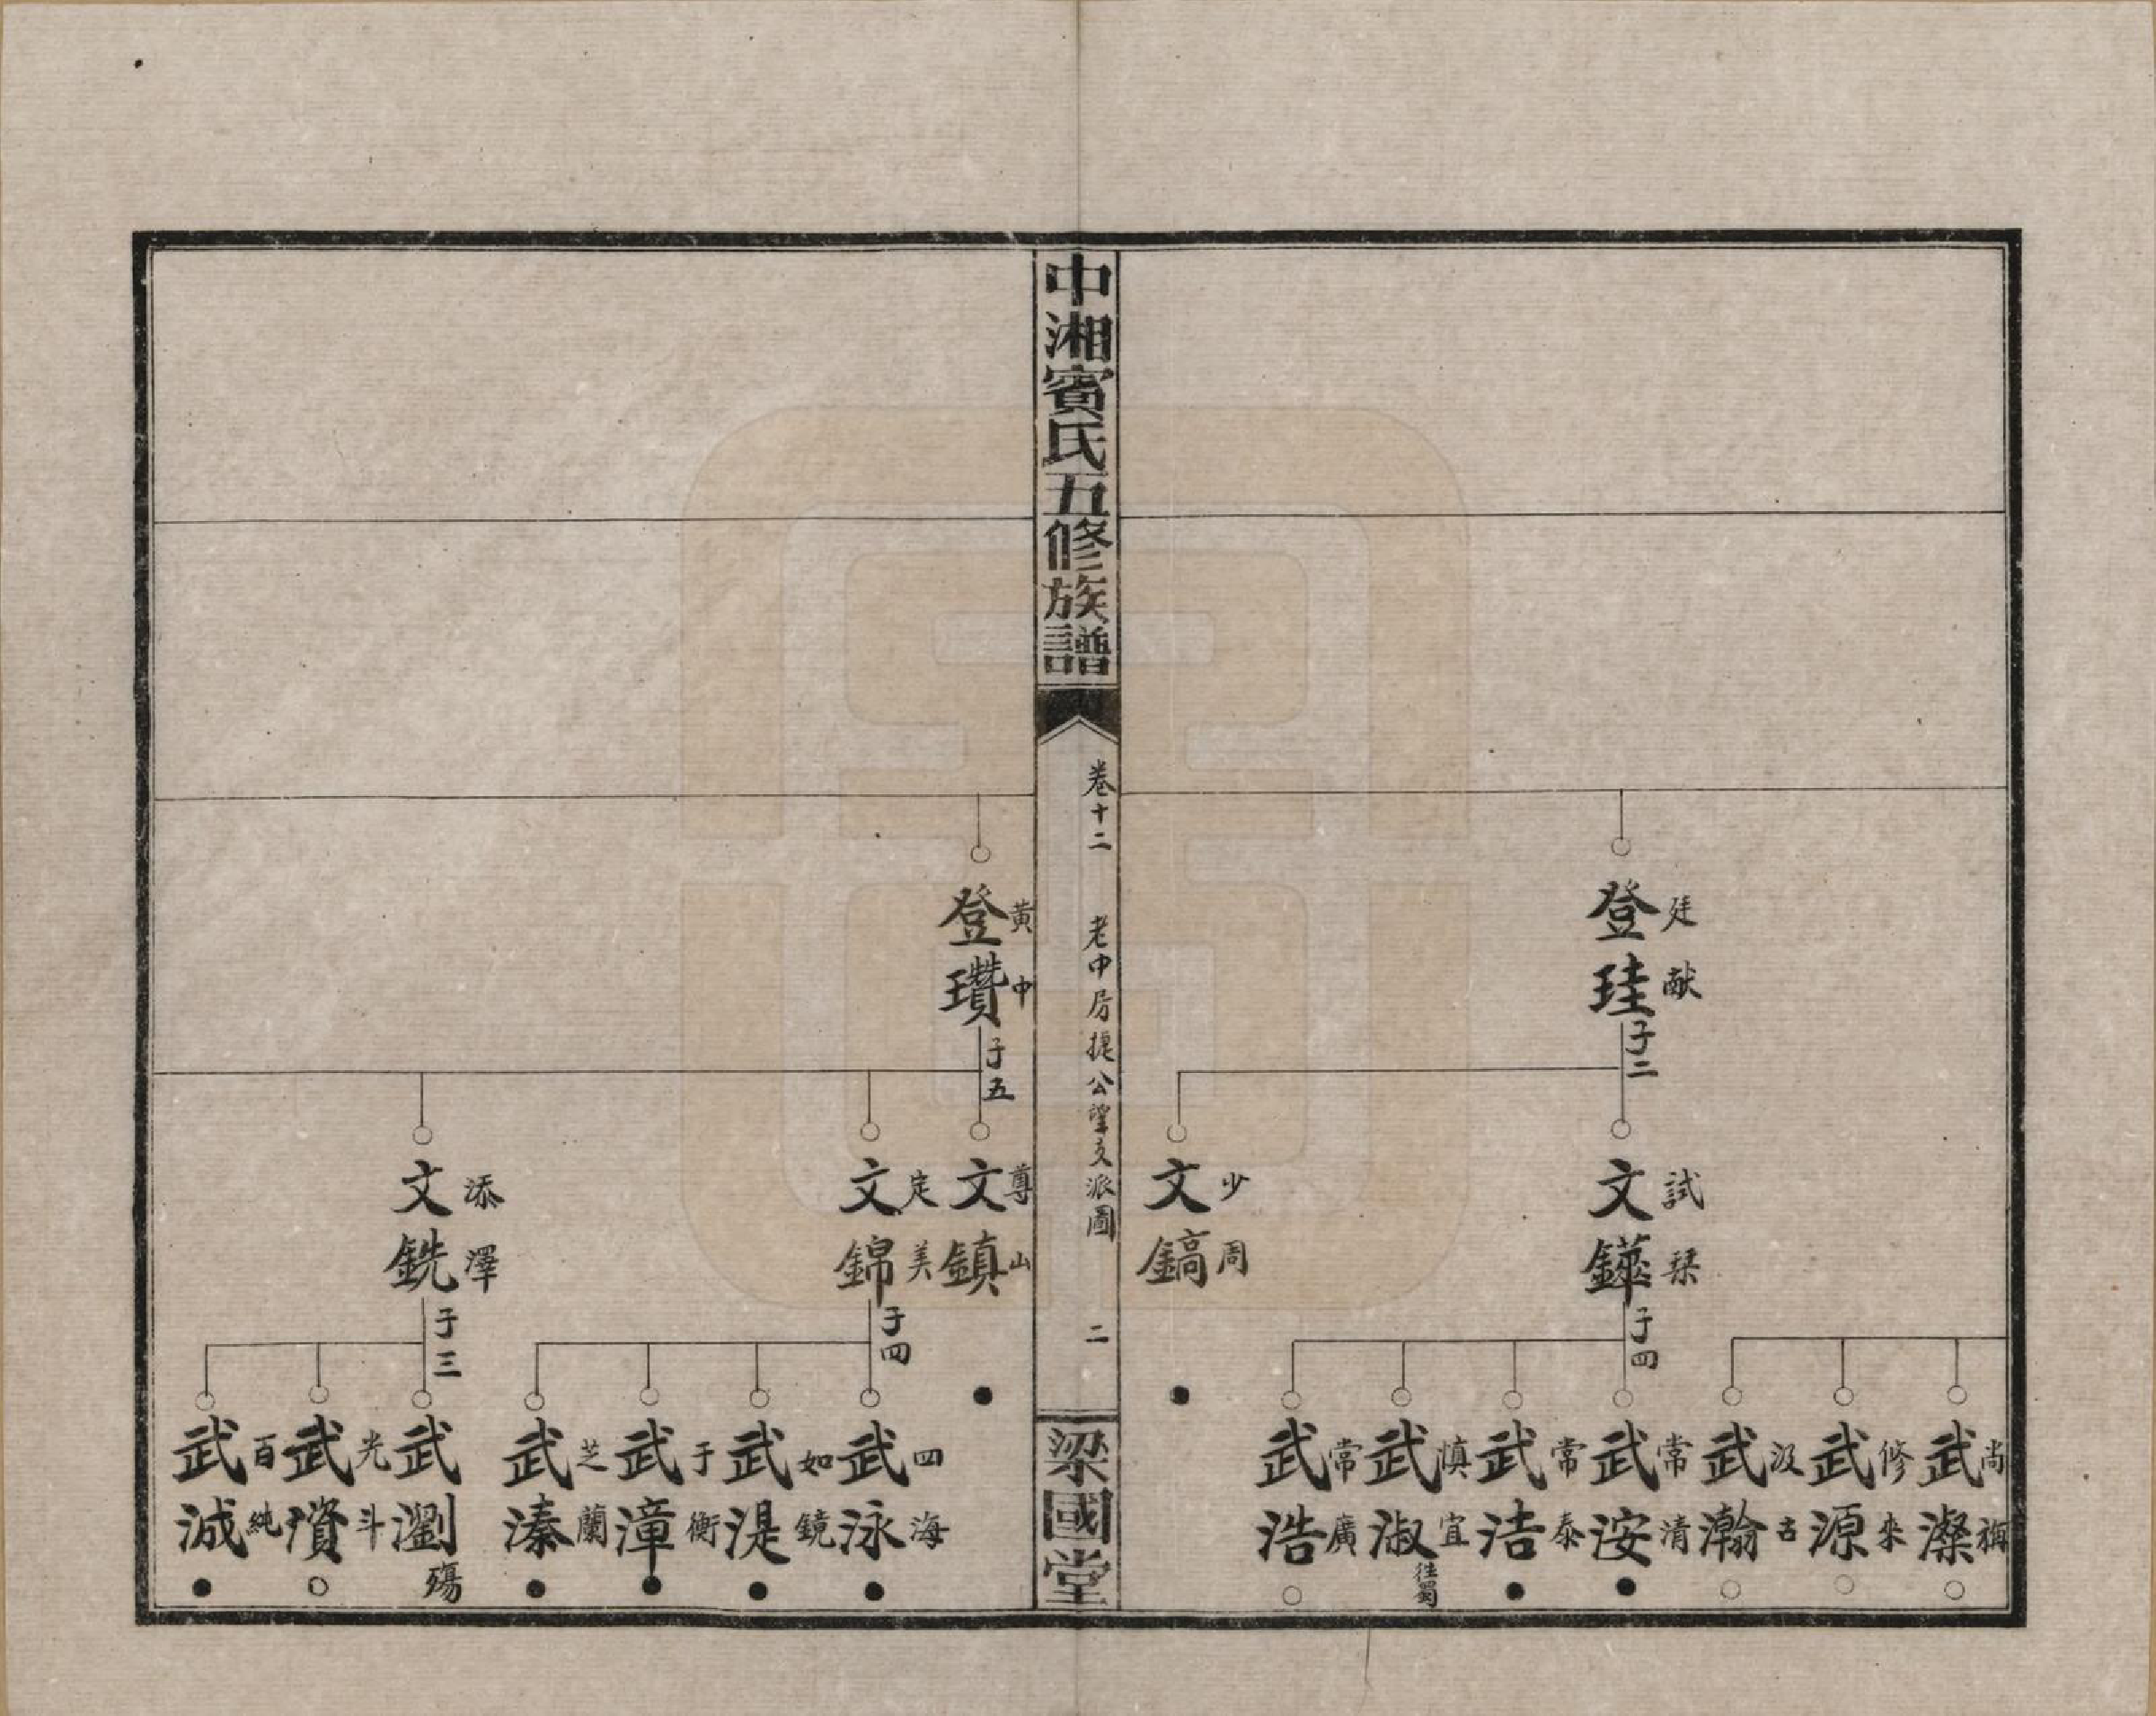 中湘賓氏五修族譜
卷十二
老中房提公望文派圖
二
梁國堂
登珪
廷献
子二
文
試琹
子四
文鎬
少周
武澯
尚裲
武源
修來
武瀚
汲古
武洝
常清
武洁
常泰
武淑
慎宜
往蜀
武浩
常廣
登瓚
黃中
子五
文鎮
尊山
文錦
定美
子四
文銑
添澤
子三
武泳
四海
武湜
如鏡
武漳
于衡
武溱
芝蘭
武瀏
殤
武濱
光斗
武減
百純